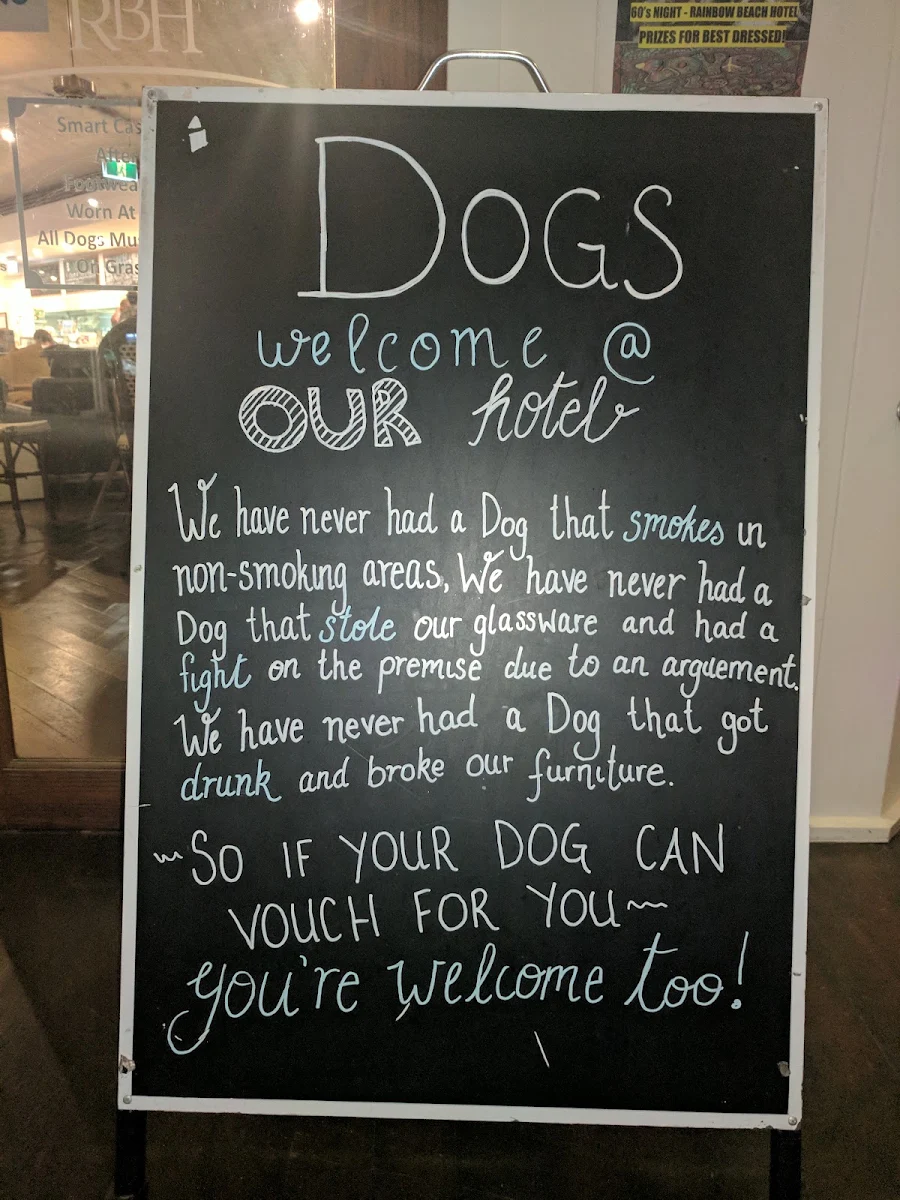 RBH
60's NIGHT - RAINBOW BEACH HOTEL
PRIZES FOR BEST DRESSED!
Smart Cas
Afte
Footwea
Worn At
All Dogs Mus
On Gras
DOGS
welcome @
OUR hotel
We have never had a Dog that smokes in
non-smoking areas, We have never had a
Dog that stole our glassware and had a
fight on the premise due to an arguement.
We have never had a Dog that got
drunk and broke our furniture.
~SO IF YOUR DOG CAN
VOUCH FOR YOU~
you're welcome too!